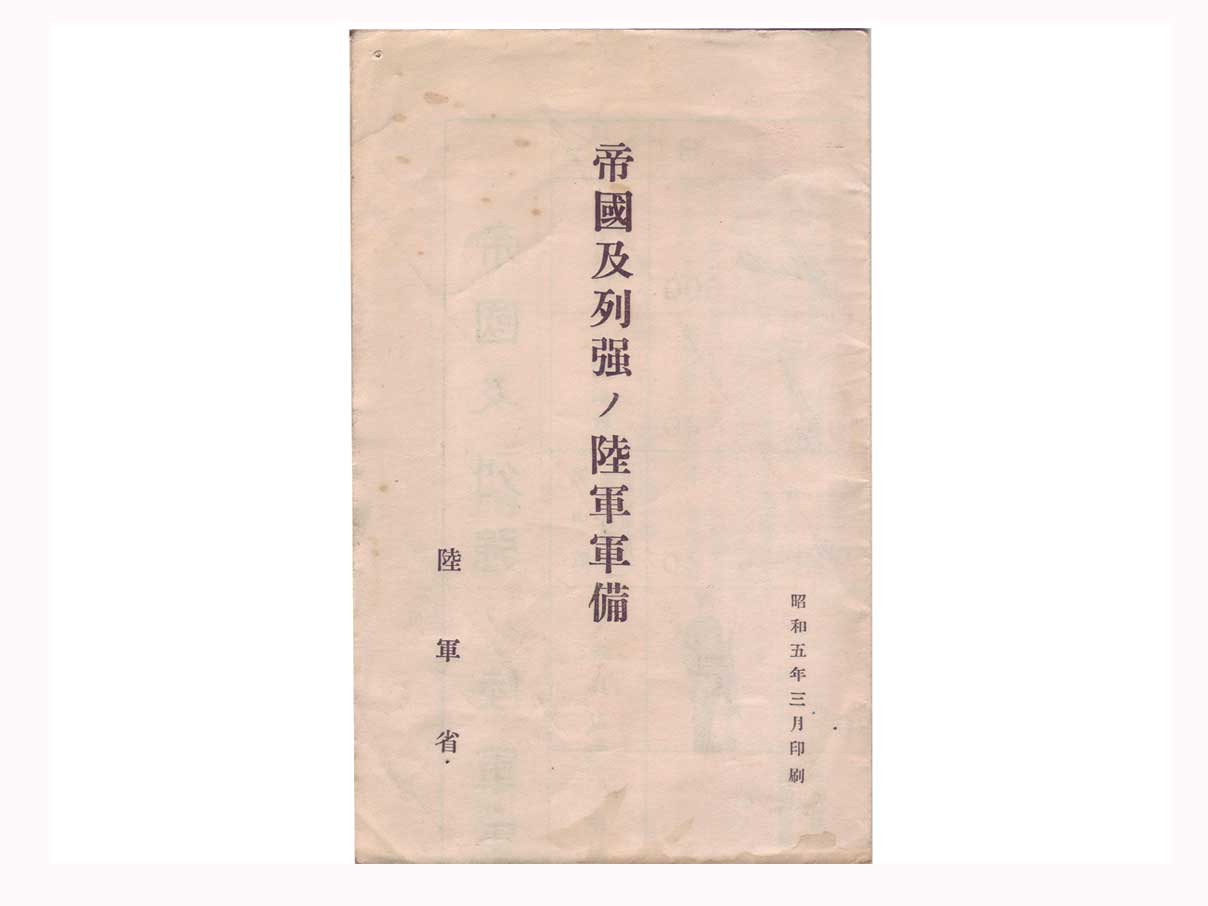 昭和五年三月印刷
帝國及列强ノ陸軍軍備
陸軍省